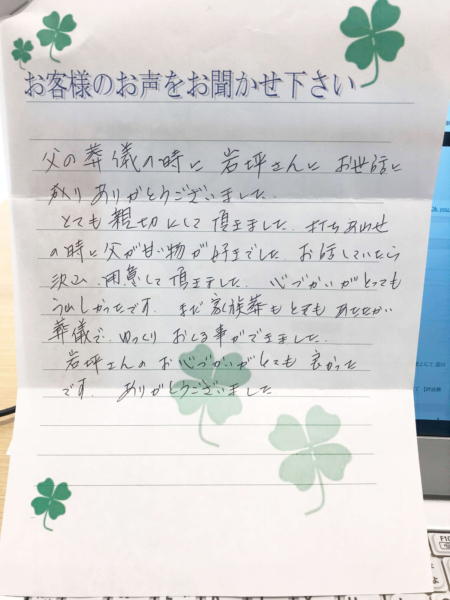 お客様のお声をお聞かせ下さい
父の葬儀の時に 岩坪さんに お世話に
なり ありがとうございました.
とても 親切にして頂きました. 打ち合わせ
の時に父が甘い物が好きでした. お話していたら
沢山 用意して頂きました. 心づかいがとっても
うれしかったです. また 家族葬も とても あたたかい
葬儀で. ゆっくり おくる事ができました.
岩坪さんの お心づかいがとても 良かった
です. ありがとうございました